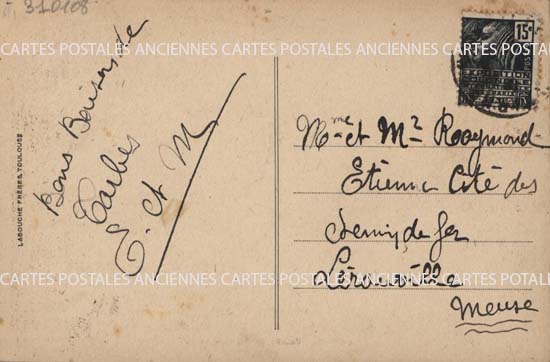 310108
CARTES POSTALES ANCIENNES CARTES POSTALES ANCIENNES CARTES POSTALES
Bons Baisers de
Tarbes
E. et M
LABOUCHE FRÈRES, TOULOUSE
15c
POSTES
Mme et Mr Raaymond
Etienne Cité des
Chemin de fer
Lérouville
Meuse
CARTES POSTALES ANCIENNES CARTES POSTALES ANCIENNES CARTES POSTALES